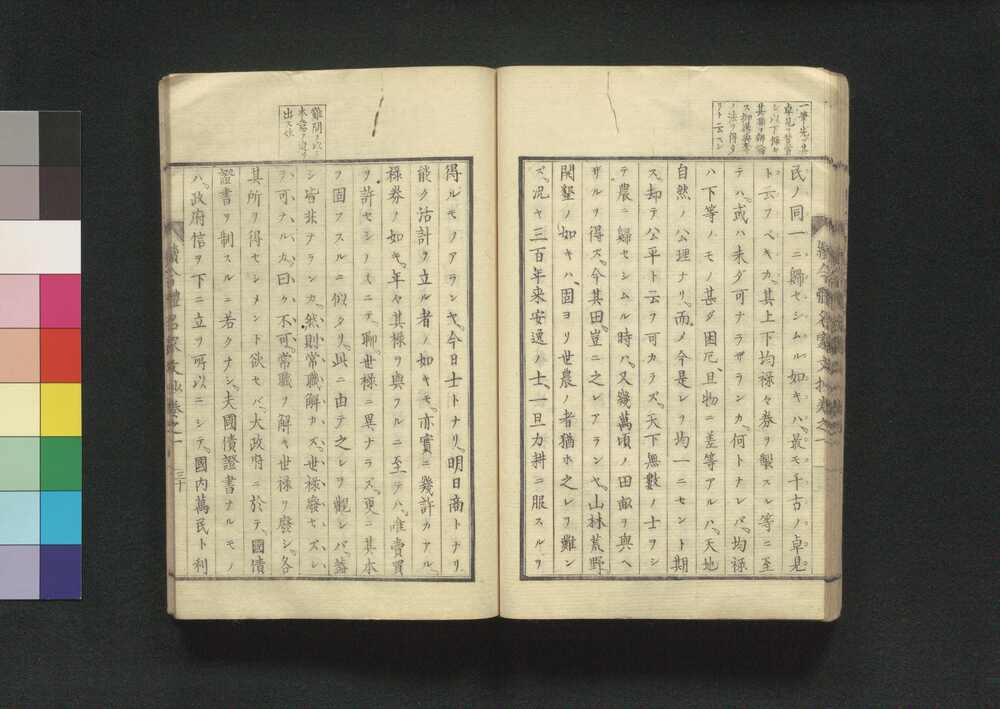 民ノ同一ニ歸セシムル如キハ、最モ千古ノ卓見
ト云フベキカ、其上下均禄々券ヲ製スル等ニ至
テハ、或ハ未ダ可ナラザランカ、何トナレバ、均禄
ハ下等ノモノ甚ダ困厄、且物ニ差等アルハ、天地
自然ノ公理ナリ、而ノ今是レヲ均一ニセント期
ス、却テ公平ト云ヲ可カラズ、天下無數ノ士ヲシ
テ農ニ歸セシムル時ハ、又幾萬頃ノ田畝ヲ與ヘ
ザルヲ得ズ、今其田、豈ニ之レアランヤ、山林荒野、
開墾ノ如キハ、固ヨリ世農ノ者猶ホ之レヲ難ン
ズ、況ヤ三百年来安逸ノ士、一旦力耕ニ服スルヲ
難問ヲ以
出ス処
得ルモノアランヤ、今日士トナリ、明日商トナリ
能ク活計ヲ立ル者ノ如キモ、亦實ニ幾許カアル、
禄券ノ如キ、年々其禄ヲ與フルニ至テハ、唯賣買
ヲ許セシノミニテ、聊世禄ニ異ナラズ、更ニ其本
ヲ固フスルニ似タリ、此ニ由テ之レヲ觀レバ、蓋
シ皆非ナランカ、然則常職解カズ、世禄廢セズシ
ヲ可ナルカ、曰ク、不可、常職ヲ解キ世禄ヲ廢シ、各
其所ヲ得セシメント欲セバ、大政府ニ於テ、國債
證書ヲ制スルニ若クナシ、夫國債證書ナルモノ
ハ、政府信ヲ下ニ立ヲ所以ニシテ、國内萬民ト利
續今體名家文抄卷之一
三十